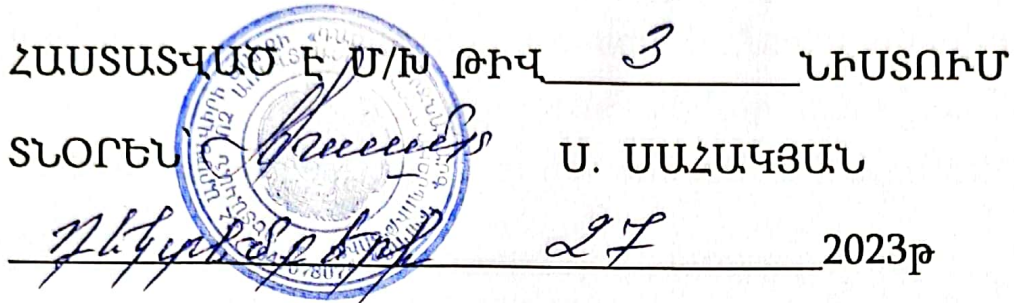 ՀԱՍՏԱՏՎԱԾ Է Մ/Խ ԹԻՎ 3 ՆԻՍՏՈՒՄ
ՏՆՕՐԵՆ՝ Ս. ՍԱՀԱԿՅԱՆ
դեկտեմբերի 27 2023թ